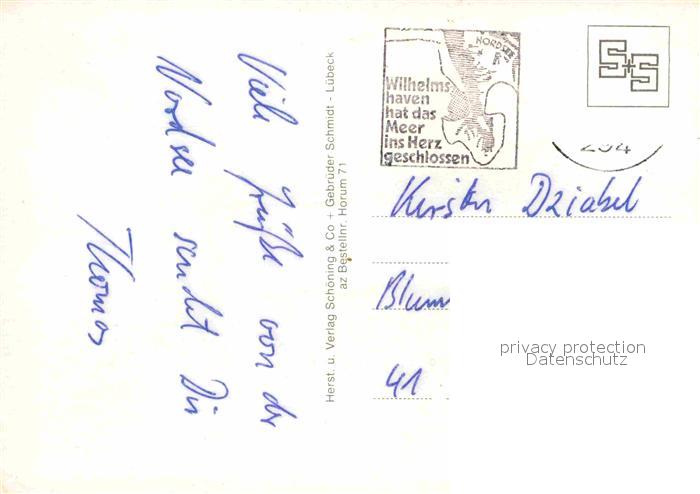 Viele Grüße von der
Nordsee sendet Dir
Thomas
Herst. u. Verlag Schöning & Co + Gebrüder Schmidt - Lübeck
az Bestellnr. Horum 71
NORDSEE
Wilhelms-
haven
hat das
Meer
ins Herz
geschlossen
S+S
294
Kirsten Dziabel
Blum
41
privacy protection
Datenschutz